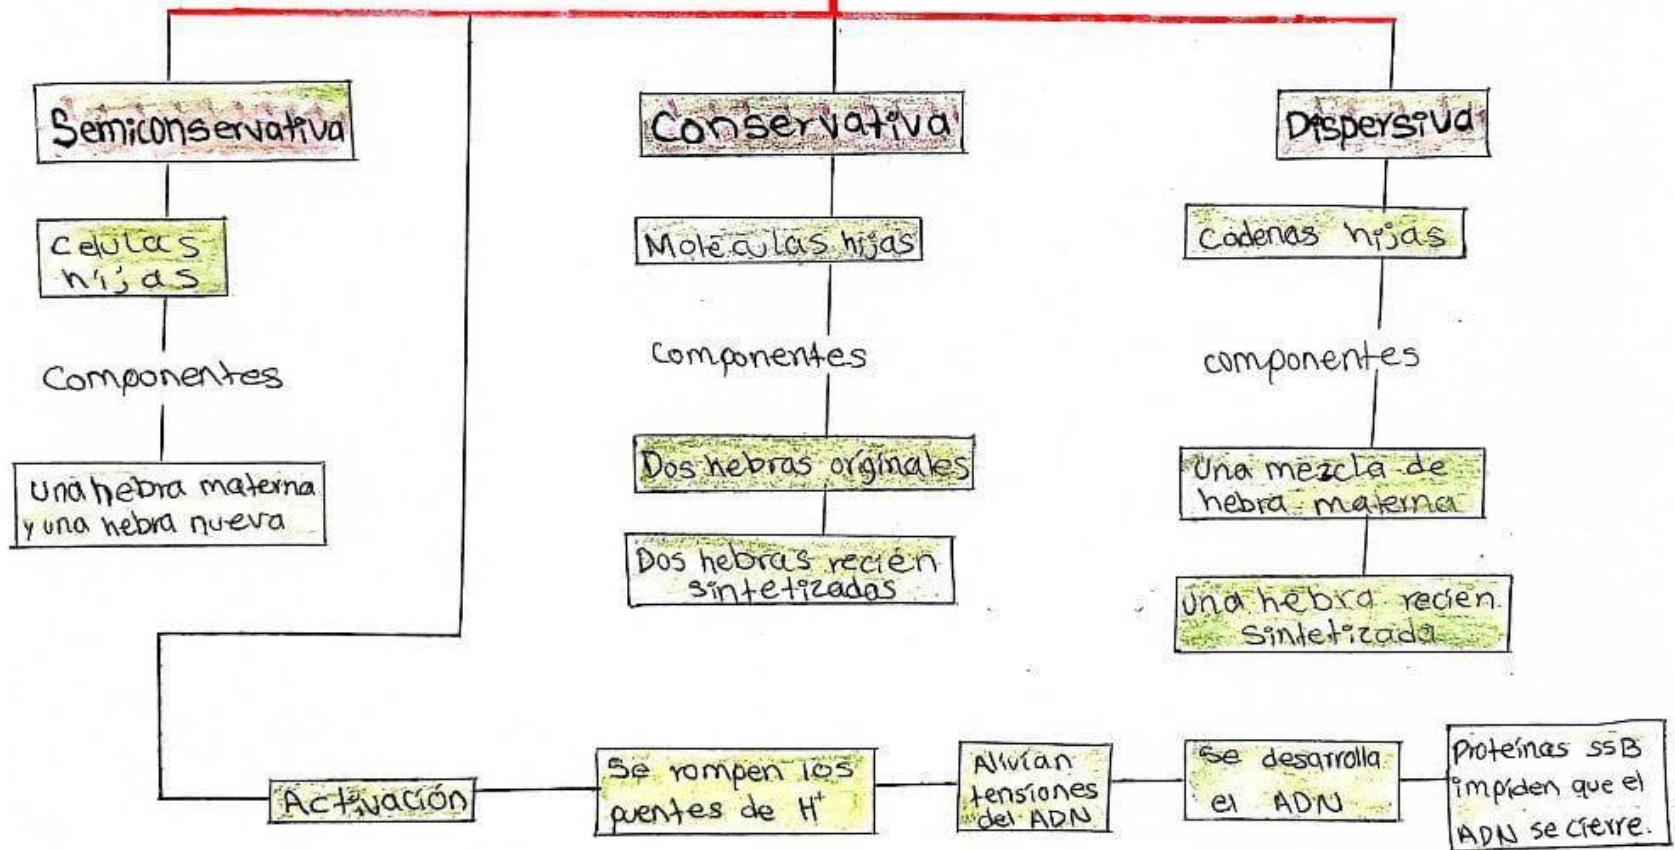 Semiconservativa
Celulas
hijas
Componentes
Una hebra materna
y una hebra nueva
Conservativa
Moléculas hijas
Componentes
Dos hebras originales
Dos hebras recién
sintetizadas
Dispersiva
Cadenas hijas
componentes
Una mezcla de
hebra materna
Una hebra recien
sintetizada
Activación
Se rompen los
puentes de H⁺
Alivian
tensiones
del ADN
Se desarrolla
el ADN
Proteínas SSB
impiden que el
ADN se cierre.